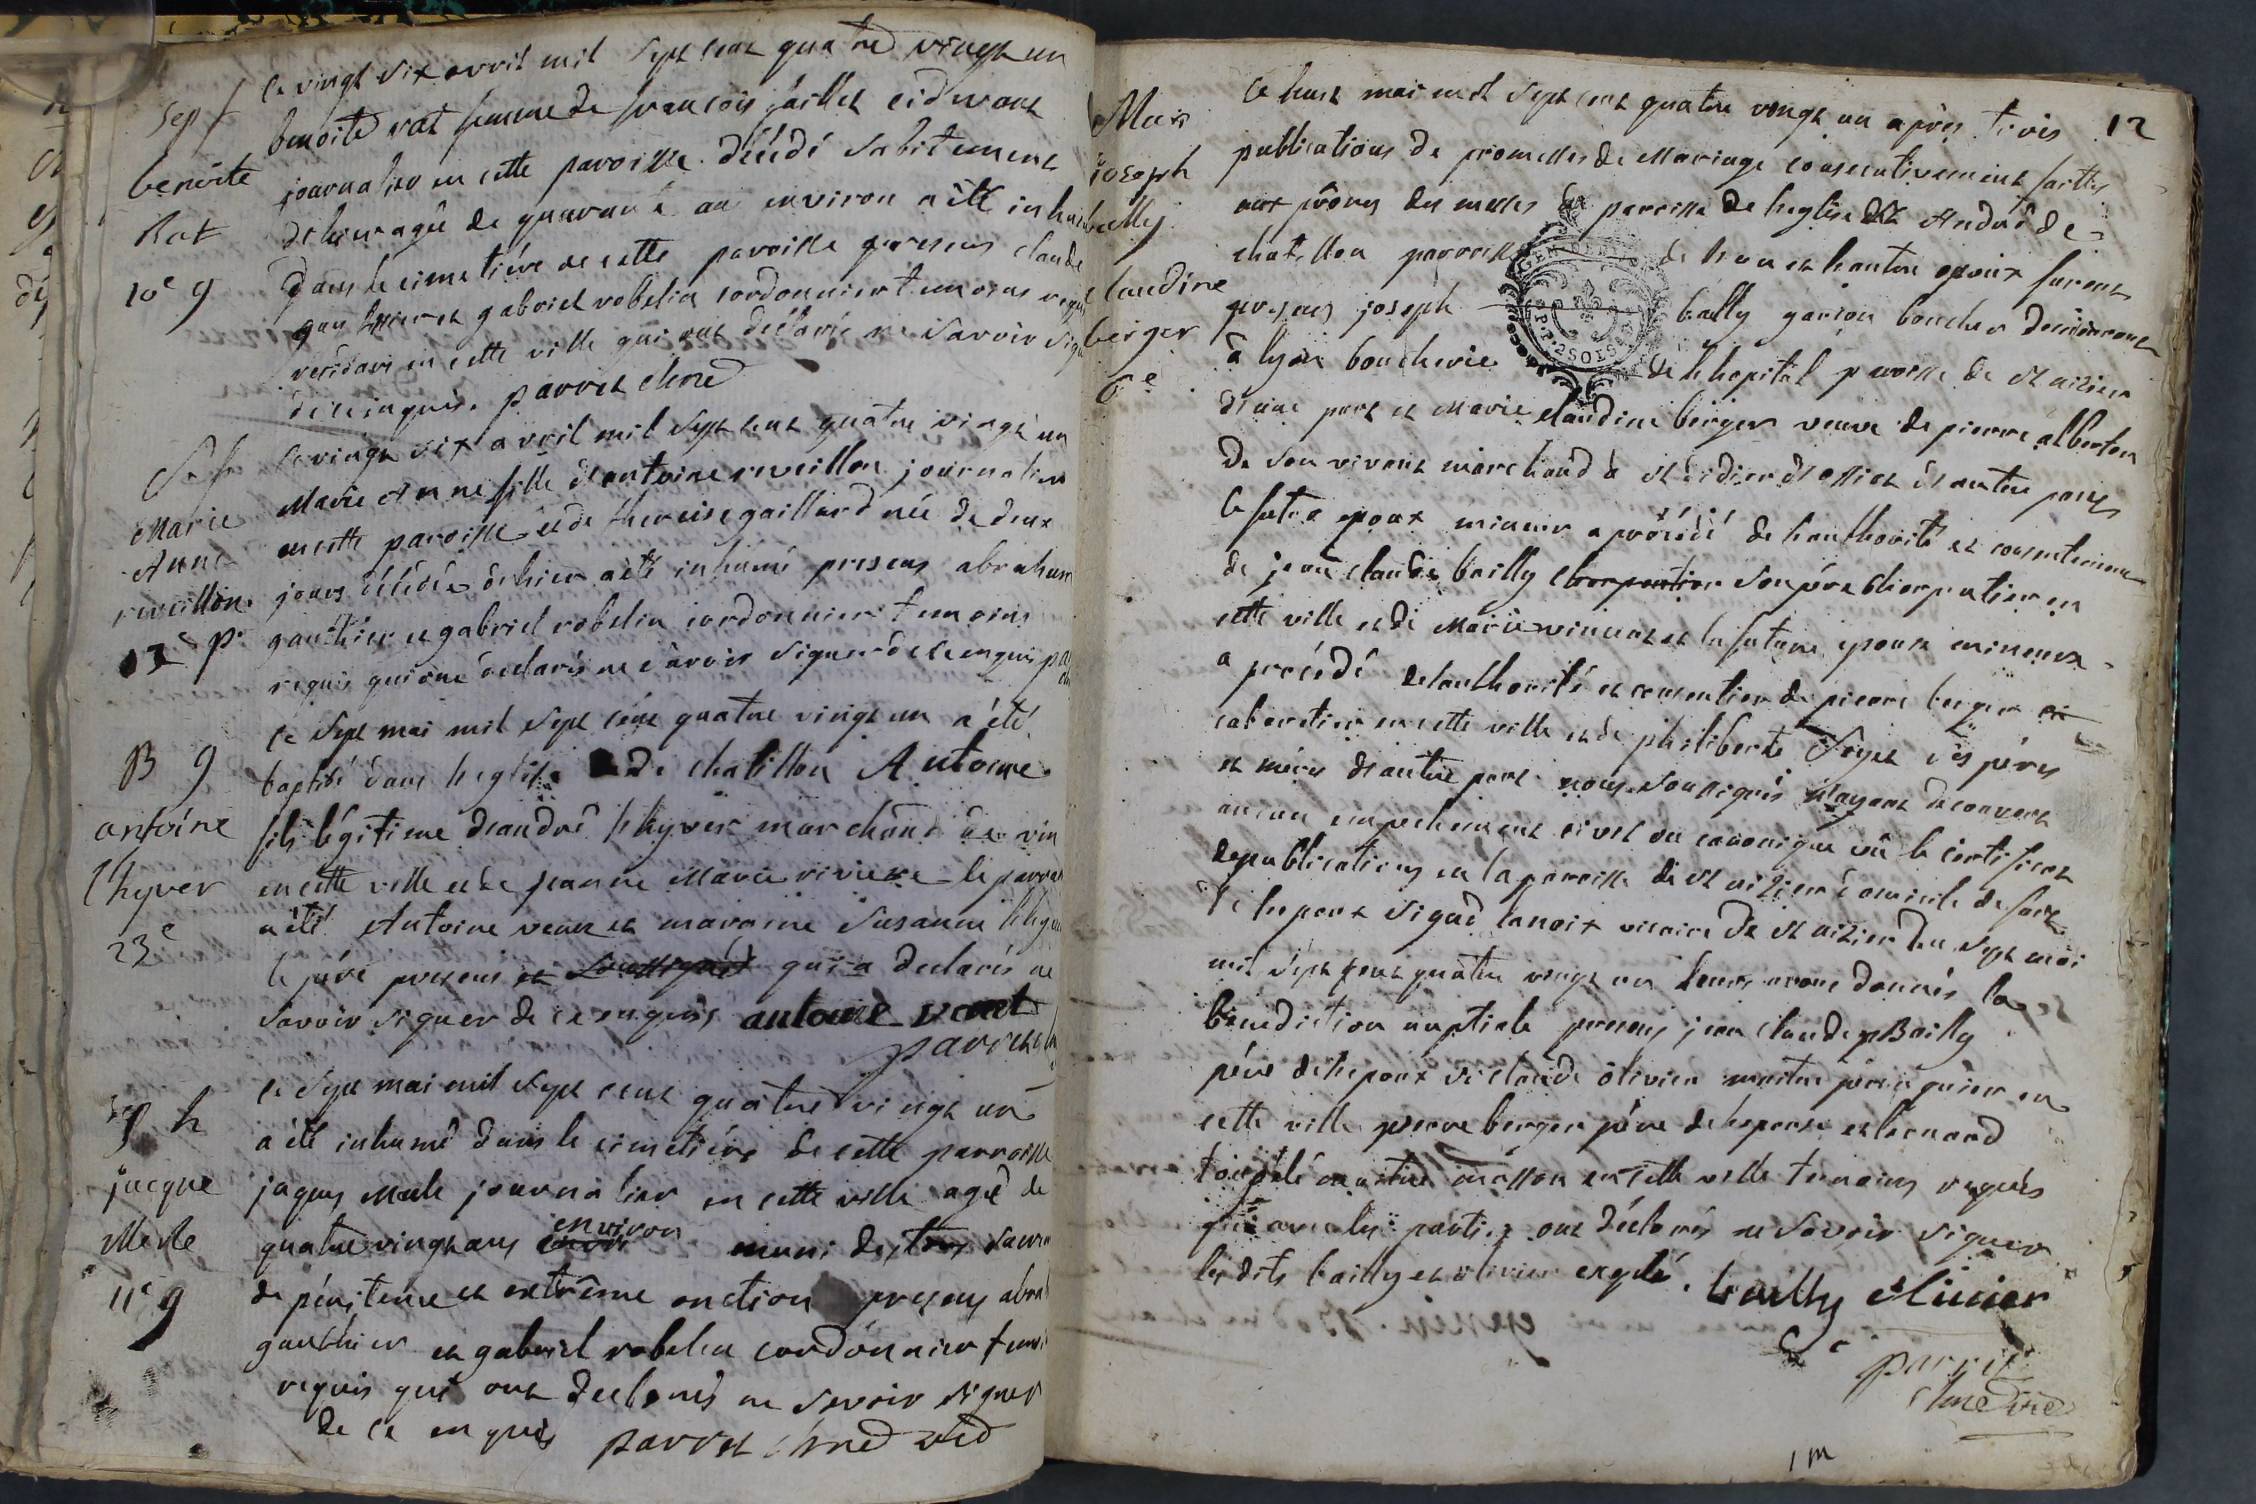 Sep
benoite
Rat
10e g
ce vingt six avril mil sept cent quatre vingt un
benoite rat femme de francois jaillet cidevant
journalier en cette paroisse décédé subitement
dehier agée de quarante an environ a été inhu
dans le cimetiére de cette paroisse presens claude
gauthier et gabriel robelin cordonnier temoins requis
residans en cette ville qui ont déclarés ne savoir sig
de ce enquis. parret chne
Sep
Marie
Anne
reveillon
13e p
ce vingt six avril mil sept cent quatre vingt un
Marie Anne fille d'antoine reveillon journalier
en cette paroisse et de therese gaillard née de deux
jours décédée dehier a été inhumé presens abraham
gauthier et gabriel robelin cordonnier temoins
requis qui ont déclarés ne savoir signer de ce enquis
B g
antoine
lhyver
23e
ce sept mai mil sept cent quatre vingt un a été
baptisé dans leglise de chatillon Antoine
fils légitime d'andré lhyver marchand de vin
en cette ville et de jeanne Marie riviere le parrain
a été Antoine venet et maraine Susanne lhyver
le pére present et soussigné qui a declarés ne
savoir signer de ce enquis antoine venet
parret
Sep h
jacque
Merle
11e g
ce sept mai mil sept cent quatre vingt un
a été inhumé dans le cimetiére de cette parroisse
jaques Merle journalier en cette ville agé de
quatre vingt ans environ muni des sacrem
de pénitence et extrême onction presens abrah
gauthier et gabriel robelin cordonnier temoi
requis qui ont declarés ne savoir signer
de ce enquis parret chne
12
Mar
joseph
bailly
claudine
berger
6e
Le huit mai mil sept cent quatre vingt un après trois
publications de promesses de Mariage consecutivement faittes
aux prônes des messes de paroisse de leglise St André de
chatillon parroisse de l'un et l'autre epoux furent
presens joseph bailly garçon boucher demeurant
à lyon boucherie de l'hopital paroisse de St nizier
d'une part et Marie claudine berger veuve de pierre alberton
de son vivant marchand à St didier d'autre part
le futur epoux mineur a procédé de l'authorité et consentement
de jean claude bailly charpentier son pére charpentier en
cette ville et de Marie vincent et la future epouse mineure
a procédé de l'authorité et consentement de pierre berger
cabaretier en cette ville et de philiberte ses péres
et méres d'autre part nous soussignés n'ayant decouvert
aucun empechement civil ou canonique vû le certificat
de publications en la paroisse de St nizier domicile de fait
de l'epoux signé lanoix vicaire de St nizier du sept mai
mil sept cent quatre vingt un leurs avons donnés la
bénédiction nuptiale presens jean claude Bailly
pére de l'epoux claude olivier maitre péruquier en
cette ville pierre berger pére de l'epouse et leonard
maitre masson en cette ville temoins requis
qui avec les parties ont déclarés ne savoir signer
les dits bailly et olivier exepté. bailly olivier
parret
chne
GEN
P. P. 2 SOLS
1 m